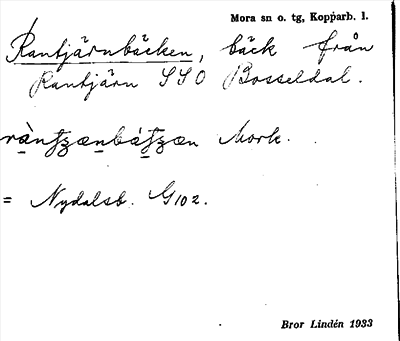 Mora sn o. tg, Kopparb. l.
Rantjärnbäcken, bäck från
Rantjärn SSO Bosseldal.
Mork.
= Nydalsb. G102.
Bror Lindén 1933